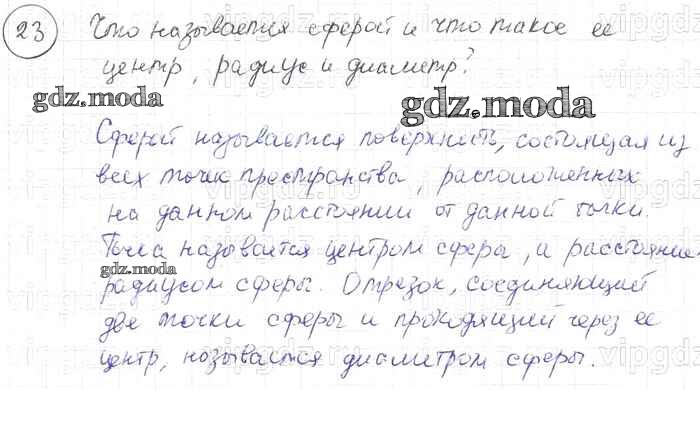 23 Что называется сферой и что такое ее
центр, радиус и диаметр?
gdz.moda gdz.moda
Сферой называется поверхность, состоящая из
всех точик пространства, расположенных
на данном расстоянии от данной точки.
Точка называется центром сферы, а расстояние-
gdz.moda
радиусом сферы. Отрезок, соединяющий
две точки сферы и проходящий через ее
центр, называется диаметром сферы.